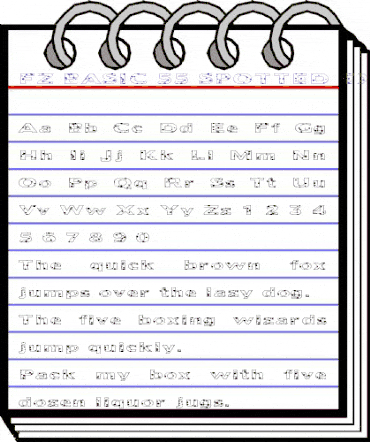 FZ BASIC 55 SPOTTED EX
Aa Bb Cc Dd Ee Ff Gg
Hh Ii Jj Kk Ll Mm Nn
Oo Pp Qq Rr Ss Tt Uu
Vv Ww Xx Yy Zz 1 2 3 4
5 6 7 8 9 0
The quick brown fox
jumps over the lazy dog.
The five boxing wizards
jump quickly.
Pack my box with five
dozen liquor jugs.